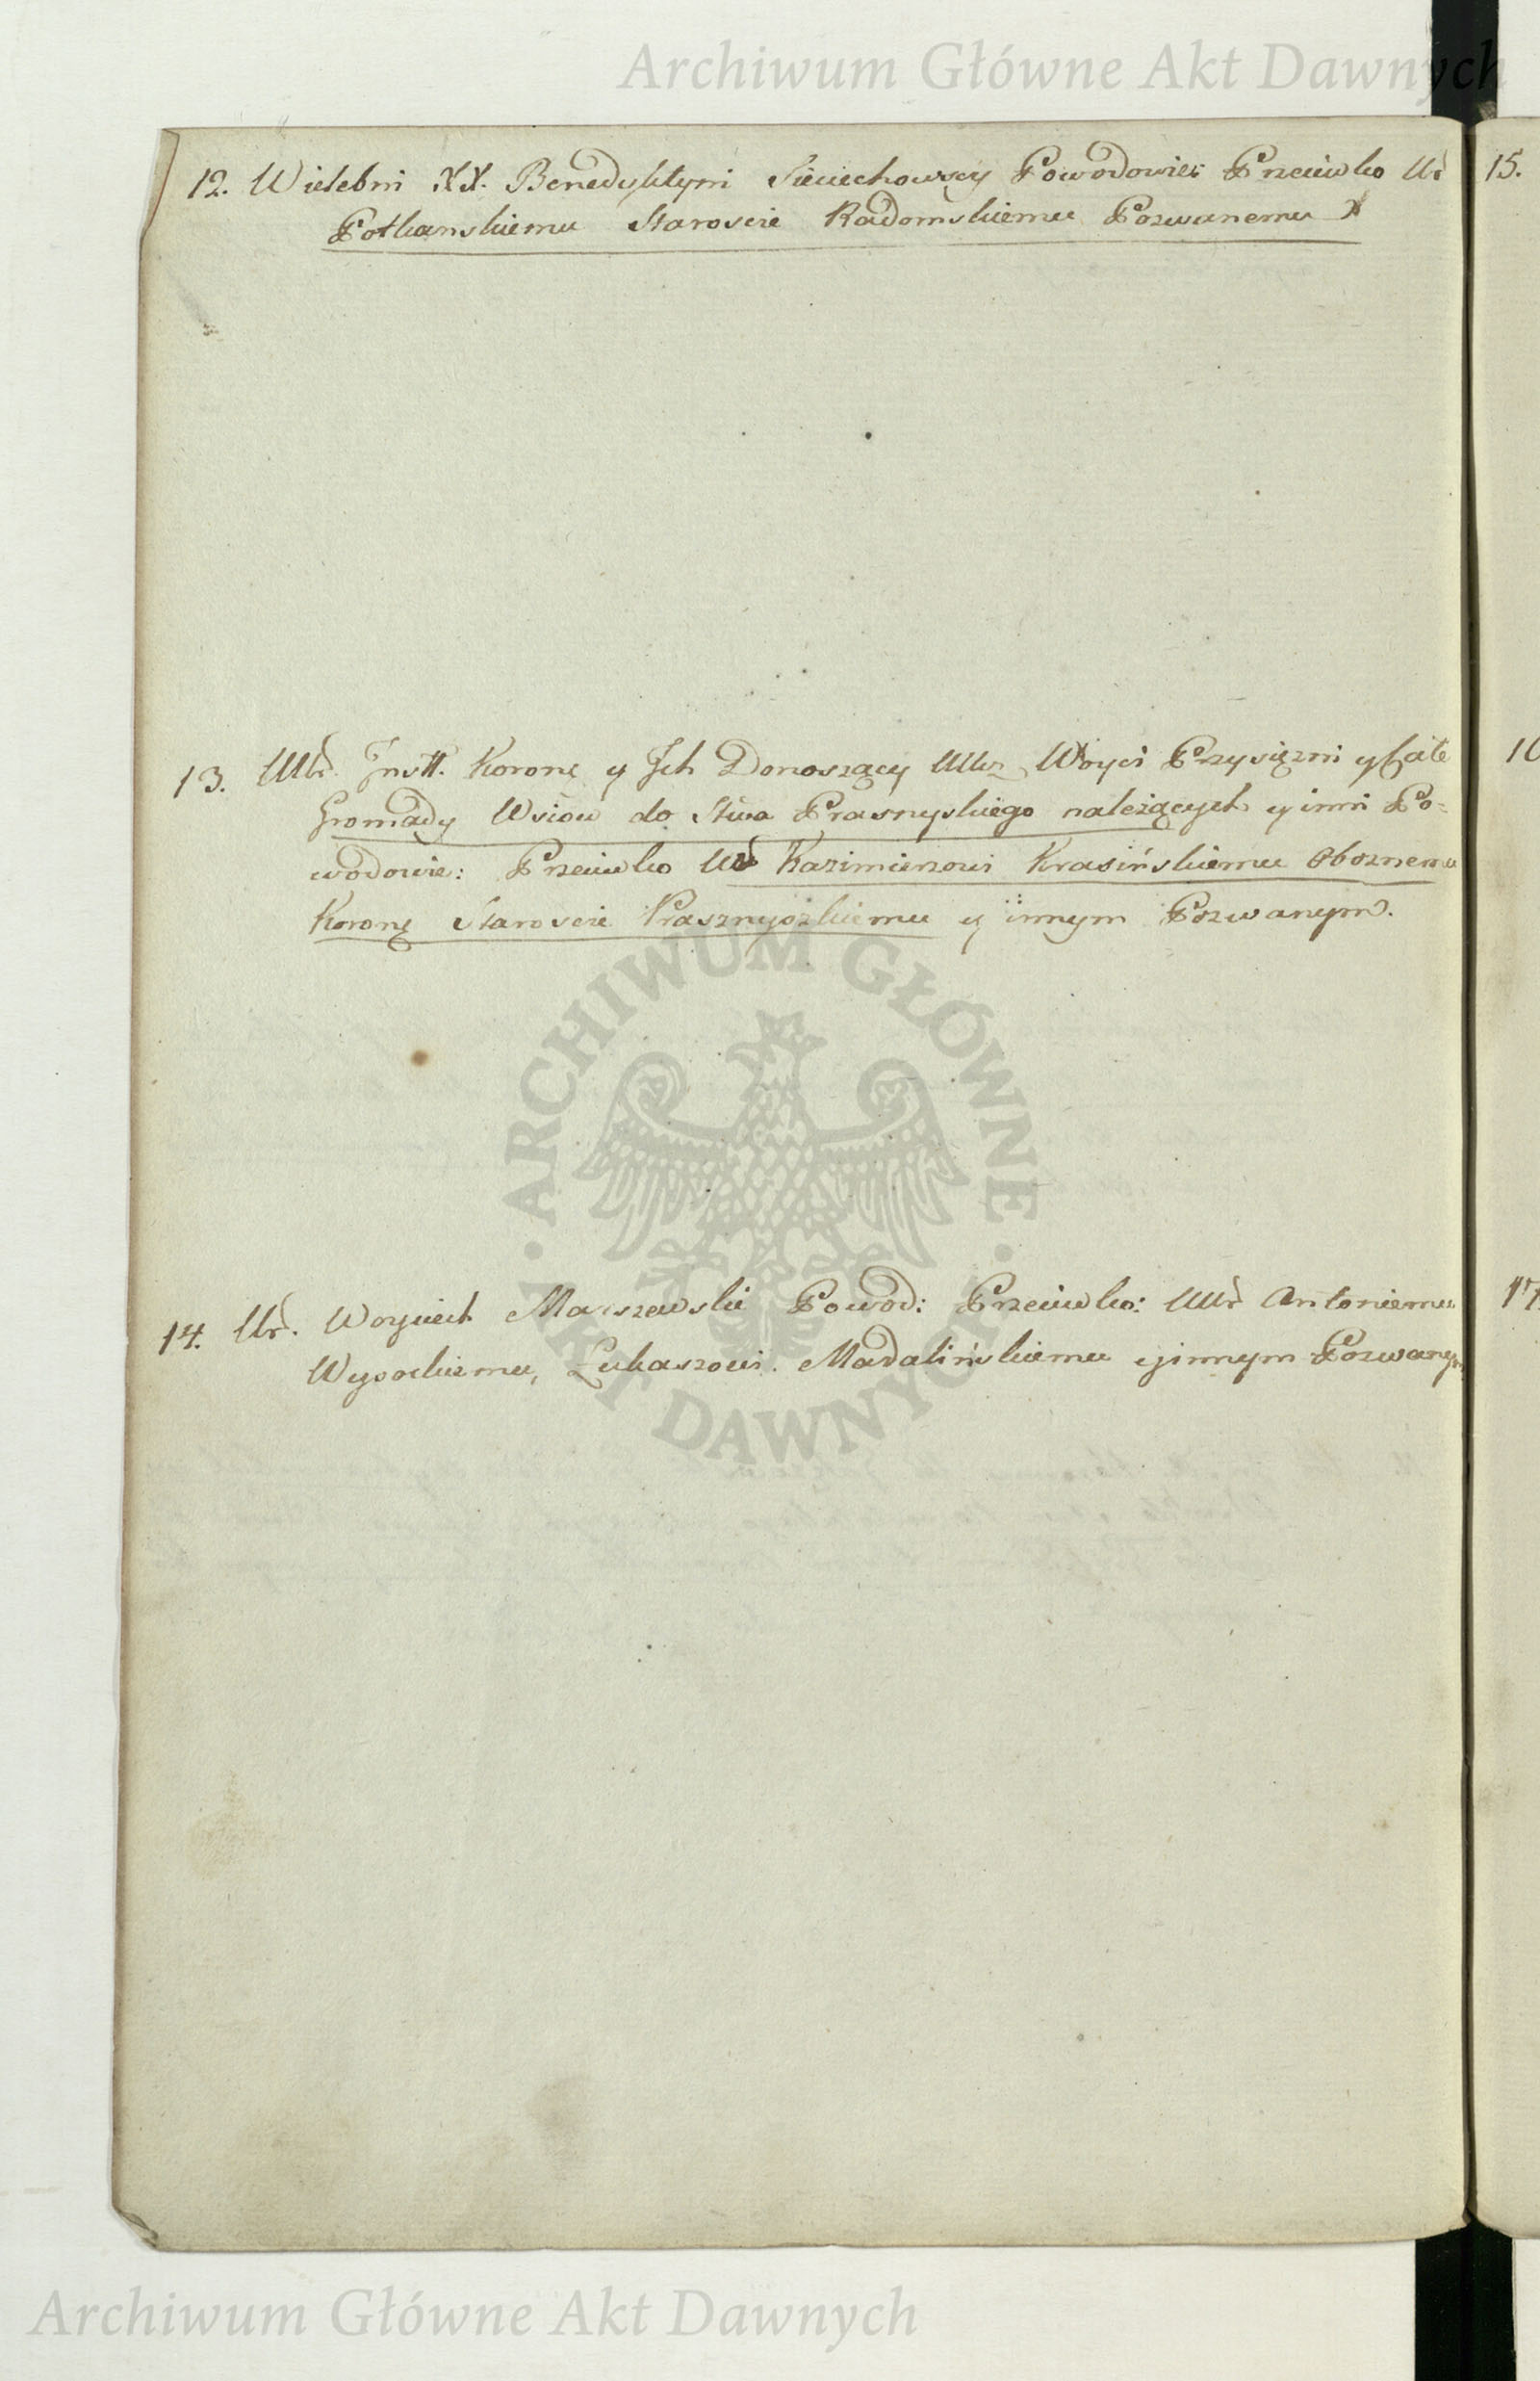 Archiwum Główne Akt Dawnych
12. Wielebni XX. Benedyktyni Sieciechowscy Powodowie: Przeciwko Ur
Potkanskiemu Staroscie Radomskiemu Pozwanemu
15.
13. UUr. Instt. Koronę y Ich Donoszący UUr. Woyci Przysiężni y Całe
Gromady Wsiów do Stwa Prasnyskiego należących y inni Po=
wodowie: Przeciwko Ur Kazimierzowi Krasińskiemu Oboznemu
Koronę Staroscie Prasznyszkiemu y innym Pozwanym.
16
ARCHIWUM GŁÓWNE · AKT DAWNYCH ·
14. Ur. Woyciech Maiszewski Powod: Przeciwko: UUr Antoniemu
Wysockiemu, Łukaszowi. Madalińskiemu y innym Pozwanym
17
Archiwum Główne Akt Dawnych